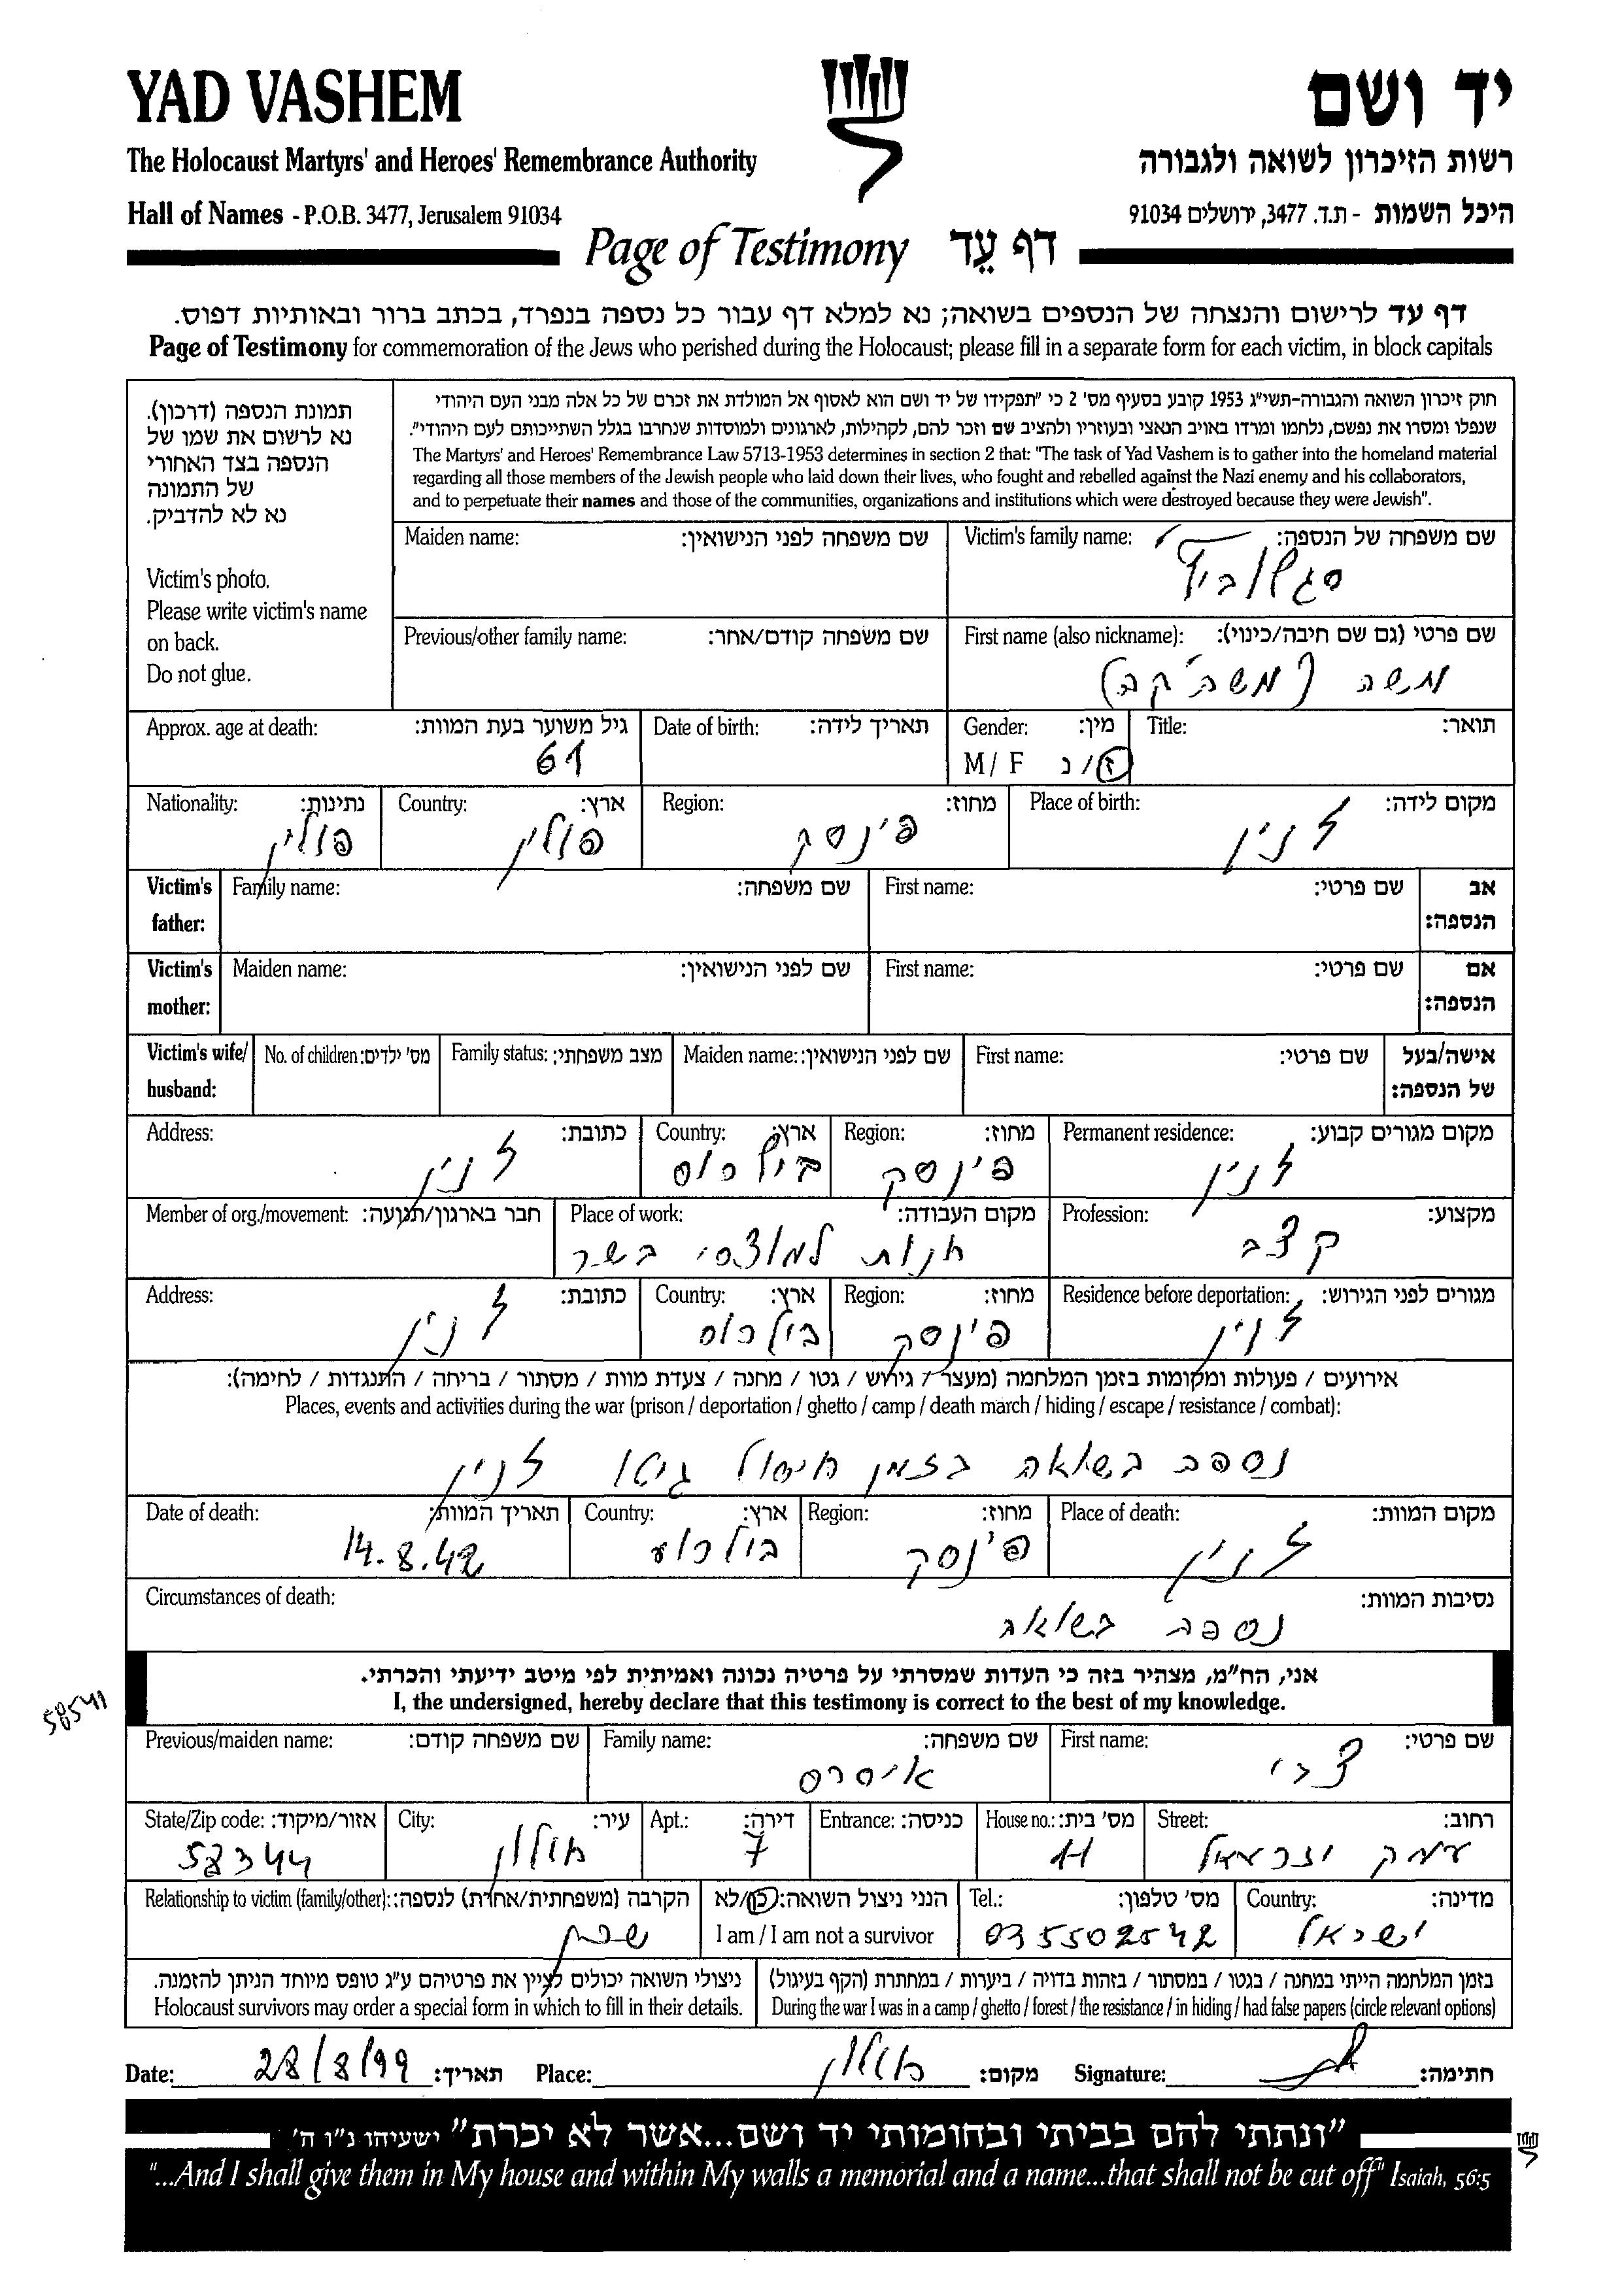 YAD VASHEM
יד ושם
The Holocaust Martyrs' and Heroes' Remembrance Authority
רשות הזיכרון לשואה ולגבורה
Hall of Names - P.O.B. 3477, Jerusalem 91034
היכל השמות - ת.ד. 3477, ירושלים 91034
Page of Testimony דף עֵד
דף עד לרישום והנצחה של הנספים בשואה; נא למלא דף עבור כל נספה בנפרד, בכתב ברור ובאותיות דפוס.
Page of Testimony for commemoration of the Jews who perished during the Holocaust; please fill in a separate form for each victim, in block capitals
תמונת הנספה (דרכון).
נא לרשום את שמו של
הנספה בצד האחורי
של התמונה
נא לא להדביק.
Victim's photo.
Please write victim's name
on back.
Do not glue.
חוק זיכרון השואה והגבורה-תשי"ג 1953 קובע בסעיף מס' 2 כי "תפקידו של יד ושם הוא לאסוף אל המולדת את זכרם של כל אלה מבני העם היהודי
שנפלו ומסרו את נפשם, נלחמו ומרדו באויב הנאצי ובעוזריו ולהציב שם וזכר להם, לקהילות, לארגונים ולמוסדות שנחרבו בגלל השתייכותם לעם היהודי".
The Martyrs' and Heroes' Remembrance Law 5713-1953 determines in section 2 that: "The task of Yad Vashem is to gather into the homeland material
regarding all those members of the Jewish people who laid down their lives, who fought and rebelled against the Nazi enemy and his collaborators,
and to perpetuate their names and those of the communities, organizations and institutions which were destroyed because they were Jewish".
Maiden name: שם משפחה לפני הנישואין:
Victim's family name: שם משפחה של הנספה:
Previous/other family name: שם משפחה קודם/אחר:
First name (also nickname): שם פרטי (גם שם חיבה/כינוי):
משה (משה'קה)
Approx. age at death: גיל משוער בעת המוות:
61
Date of birth: תאריך לידה:
Gender: מין:
M / F ז/נ
Title: תואר:
Nationality: נתינות:
פולין
Country: ארץ:
פולין
Region: מחוז:
פינסק
Place of birth: מקום לידה:
לנין
Victim's father:
Family name: שם משפחה:
First name: שם פרטי:
אב הנספה:
Victim's mother:
Maiden name: שם לפני הנישואין:
First name: שם פרטי:
אם הנספה:
Victim's wife/ husband:
No. of children: מס' ילדים:
Family status: מצב משפחתי:
Maiden name: שם לפני הנישואין:
First name: שם פרטי:
אישה/בעל של הנספה:
Address: כתובת:
לנין
Country: ארץ:
בילרוס
Region: מחוז:
פינסק
Permanent residence: מקום מגורים קבוע:
לנין
Member of org./movement: חבר בארגון/תנועה:
Place of work: מקום העבודה:
חנות למוצרי בשר
Profession: מקצוע:
קצב
Address: כתובת:
לנין
Country: ארץ:
בילרוס
Region: מחוז:
פינסק
Residence before deportation: מגורים לפני הגירוש:
לנין
אירועים / פעולות ומקומות בזמן המלחמה (מעצר / גירוש / גטו / מחנה / צעדת מוות / מסתור / בריחה / התנגדות / לחימה):
Places, events and activities during the war (prison / deportation / ghetto / camp / death march / hiding / escape / resistance / combat):
נספה בשואה בזמן חיסול גיטו לנין
Date of death: תאריך המוות:
14.8.42
Country: ארץ:
בילרוס
Region: מחוז:
פינסק
Place of death: מקום המוות:
לנין
Circumstances of death: נסיבות המוות:
נספה בשואה
אני, הח"מ, מצהיר בזה כי העדות שמסרתי על פרטיה נכונה ואמיתית לפי מיטב ידיעתי והכרתי.
I, the undersigned, hereby declare that this testimony is correct to the best of my knowledge.
58541
Previous/maiden name: שם משפחה קודם:
Family name: שם משפחה:
איסרס
First name: שם פרטי:
צבי
State/Zip code: אזור/מיקוד:
58344
City: עיר:
חולון
Apt.: דירה:
7
Entrance: כניסה:
House no.: מס' בית:
11
Street: רחוב:
עמק יזרעאל
Relationship to victim (family/other): הקרבה (משפחתית/אחרת) לנספה:
שכן
הנני ניצול השואה: כן/לא
I am / I am not a survivor
Tel.: מס' טלפון:
035502542
Country: מדינה:
ישראל
ניצולי השואה יכולים לציין את פרטיהם ע"ג טופס מיוחד הניתן להזמנה.
Holocaust survivors may order a special form in which to fill in their details.
בזמן המלחמה הייתי במחנה / בגטו / במסתור / בזהות בדויה / ביערות / במחתרת (הקף בעיגול)
During the war I was in a camp / ghetto / forest / the resistance / in hiding / had false papers (circle relevant options)
Date: 28/8/99 תאריך:
Place: חולון מקום:
Signature: חתימה:
"ונתתי להם בביתי ובחומותי יד ושם...אשר לא יכרת" ישעיהו נ"ו ה'
"...And I shall give them in My house and within My walls a memorial and a name...that shall not be cut off" Isaiah, 56:5